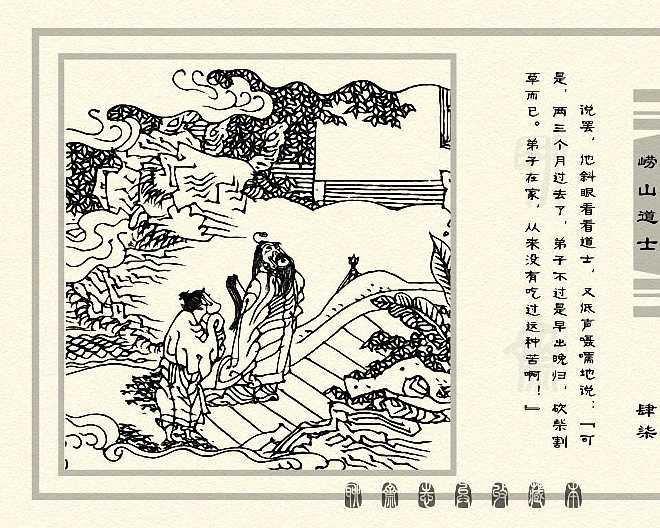 说罢，他斜眼看看道士，又低声嗫嚅地说：「可
是，两三个月过去了，弟子不过是早出晚归，砍柴割
草而已。弟子在家，从来没有吃过这种苦啊！」
崂山道士
肆柒
聊斋志异珍藏本